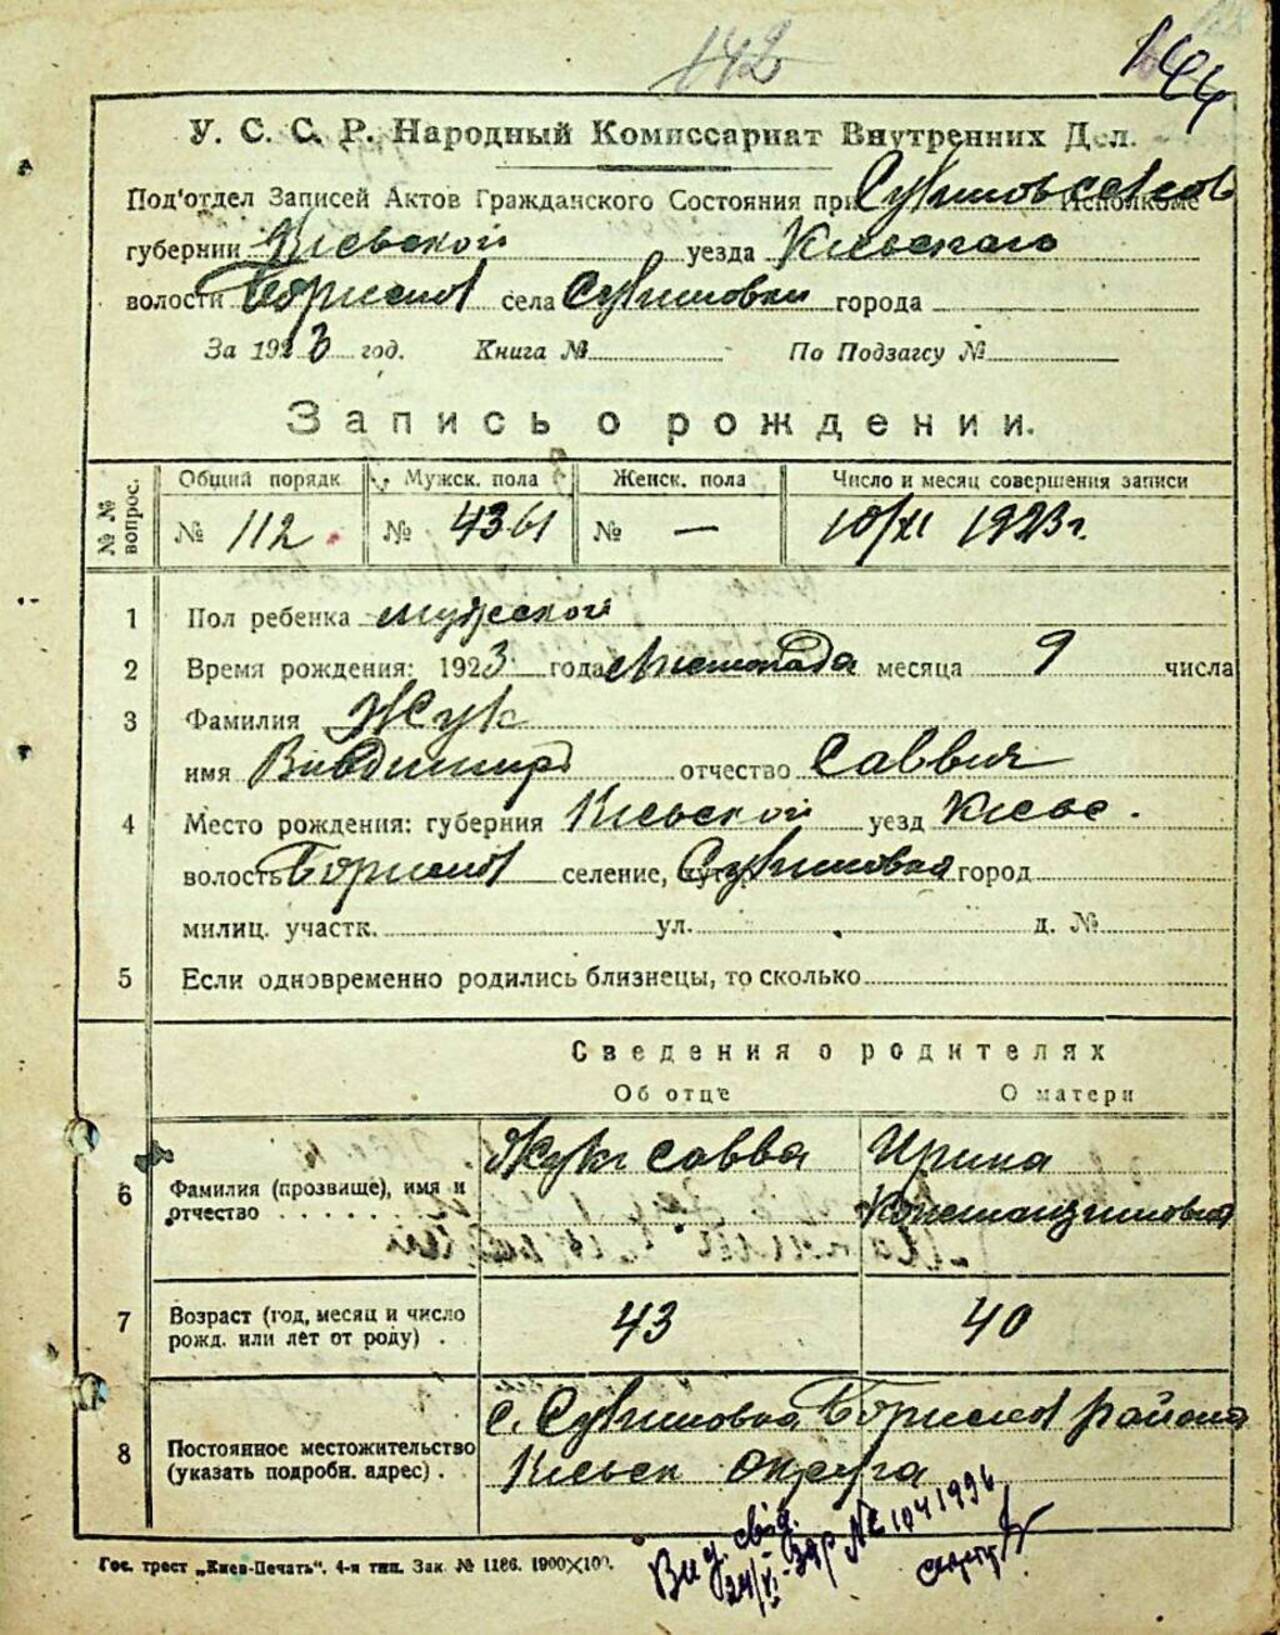 142
144
У. С. С. Р. Народный Комиссариат Внутренних Дел.
Под'отдел Записей Актов Гражданского Состояния при Исполкоме
губернии Киевской уезда Киевскаго
волости Бориспол села города
За 1923 год. Книга № По Подзагсу №
Запись о рождении.
№ № вопрос. Общий порядк Мужск. пола Женск. пола Число и месяц совершения записи
№ 112 № № — 10/XI 1923 г.
1 Пол ребенка мужеской
2 Время рождения: 1923 года Листопада месяца 9 числа
3 Фамилия Жук
имя отчество Саввич
4 Место рождения: губерния Киевской уезд Киевс.
волость Борисполь селение, хутор город
милиц. участк. ул. д. №
5 Если одновременно родились близнецы, то сколько
Сведения о родителях
Об отце О матери
6 Фамилия (прозвище), имя и отчество Жук Савва Ирина
Константиновна
7 Возраст (год, месяц и число рожд. или лет от роду) 43 40
8 Постоянное местожительство (указать подробн. адрес) с. района
Киевск округа
Гос. трест „Киев-Печать“. 4-я тип. Зак. № 1186. 1900×100.